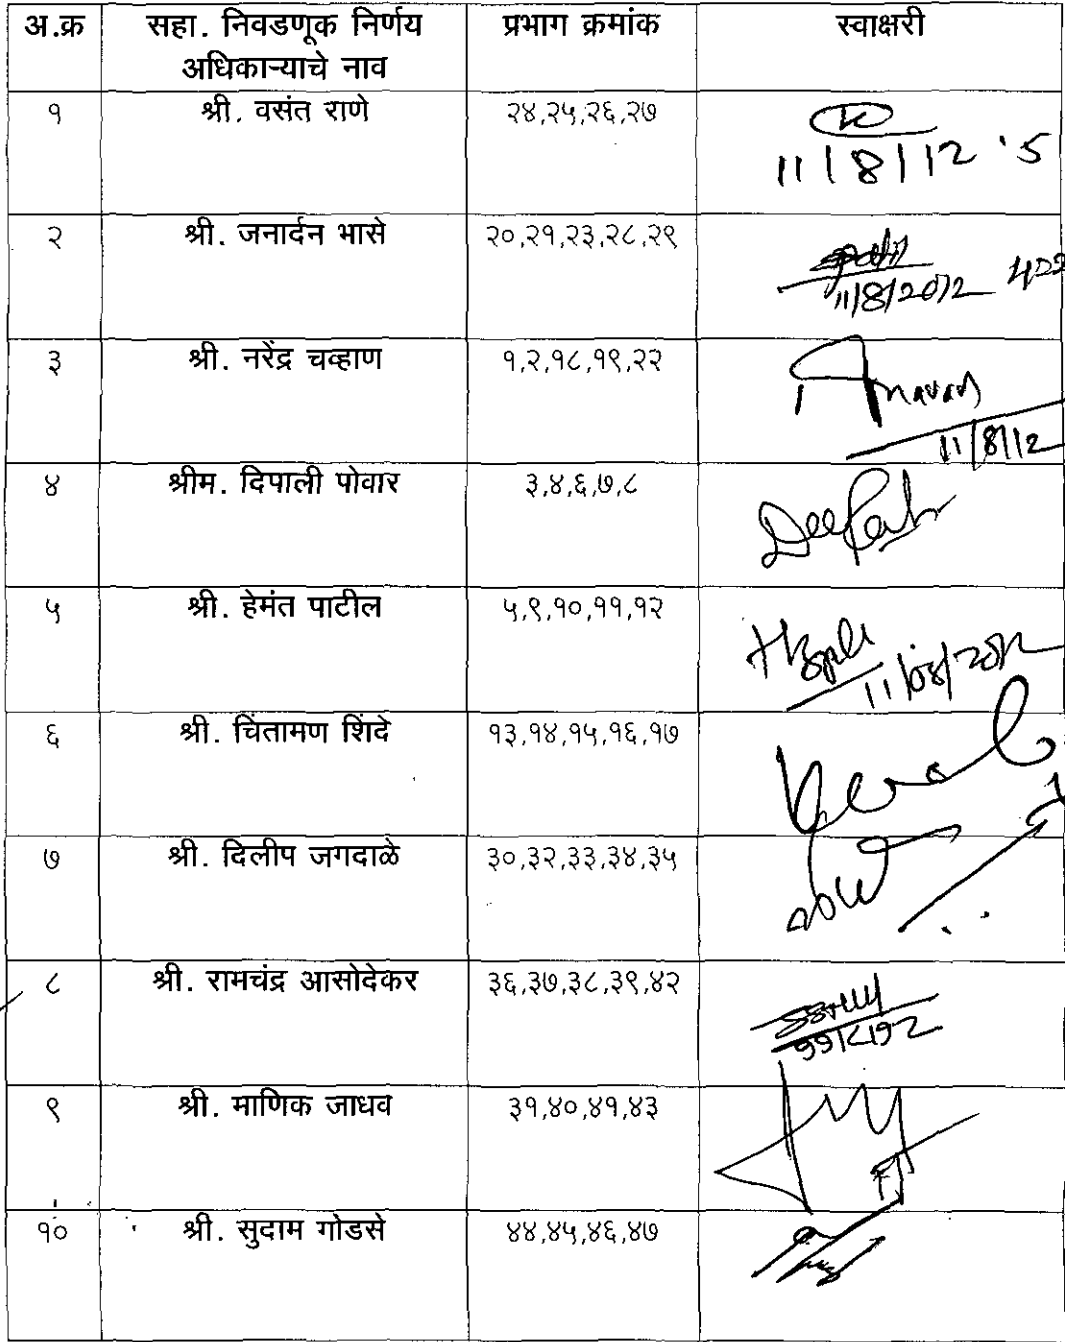 अ.क्र सहा. निवडणूक निर्णय प्रभाग क्रमांक स्वाक्षरी
अधिकाऱ्याचे नाव
१ श्री. वसंत राणे २४,२५,२६,२७
11/8/12
२ श्री. जनार्दन भासे २०,२१,२३,२८,२९
11/8/2012
३ श्री. नरेंद्र चव्हाण १,२,१८,१९,२२
11/8/12
४ श्रीम. दिपाली पोवार ३,४,६,७,८
५ श्री. हेमंत पाटील ५,९,१०,११,१२
11/08/2012
६ श्री. चिंतामण शिंदे १३,१४,१५,१६,१७
७ श्री. दिलीप जगदाळे ३०,३२,३३,३४,३५
८ श्री. रामचंद्र आसोदेकर ३६,३७,३८,३९,४२
११/८/१२
९ श्री. माणिक जाधव ३१,४०,४१,४३
१० श्री. सुदाम गोडसे ४४,४५,४६,४७